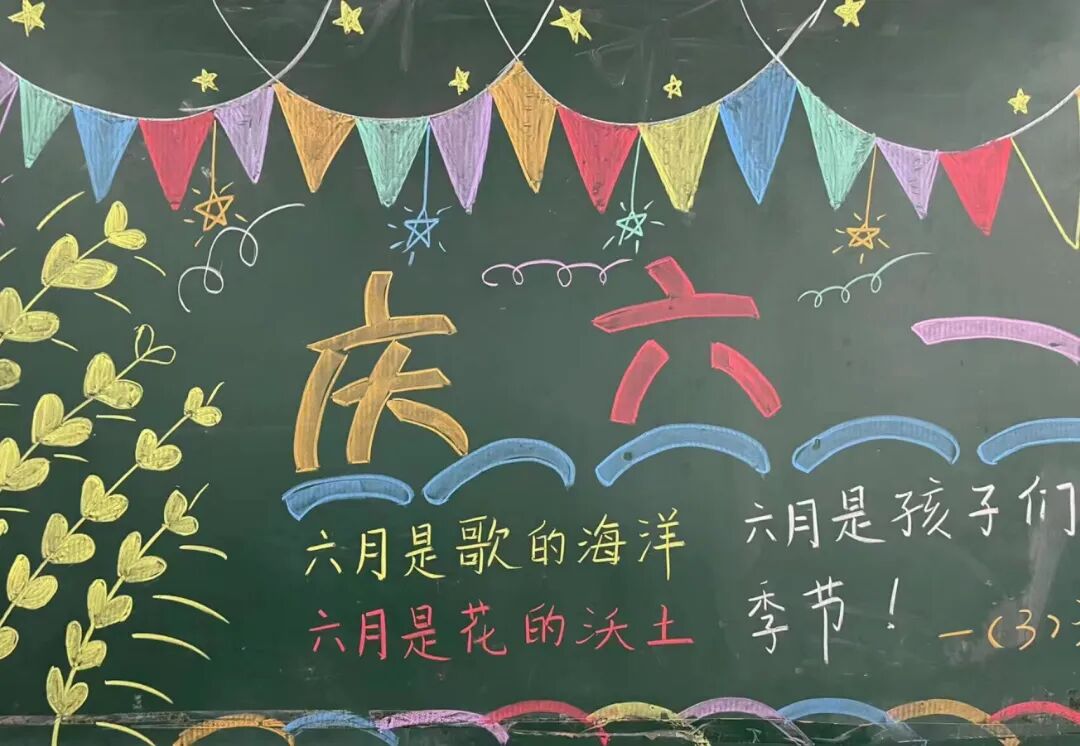 庆六一
六月是歌的海洋
六月是花的沃土
六月是孩子们
季节!
一(3)